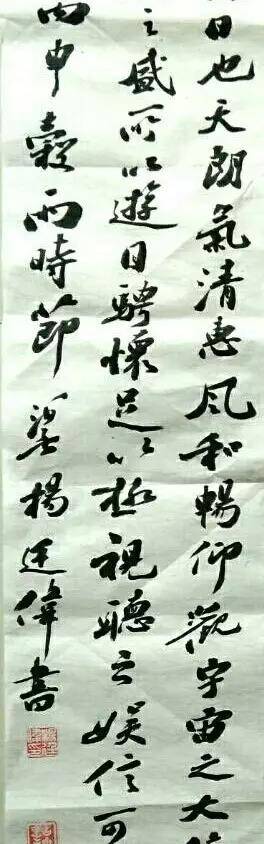 日也天朗氣清惠风和暢仰觀宇宙之大
之盛所以遊目騁懷足以極視聽之娛信可
丙申穀雨時節楊廷偉書